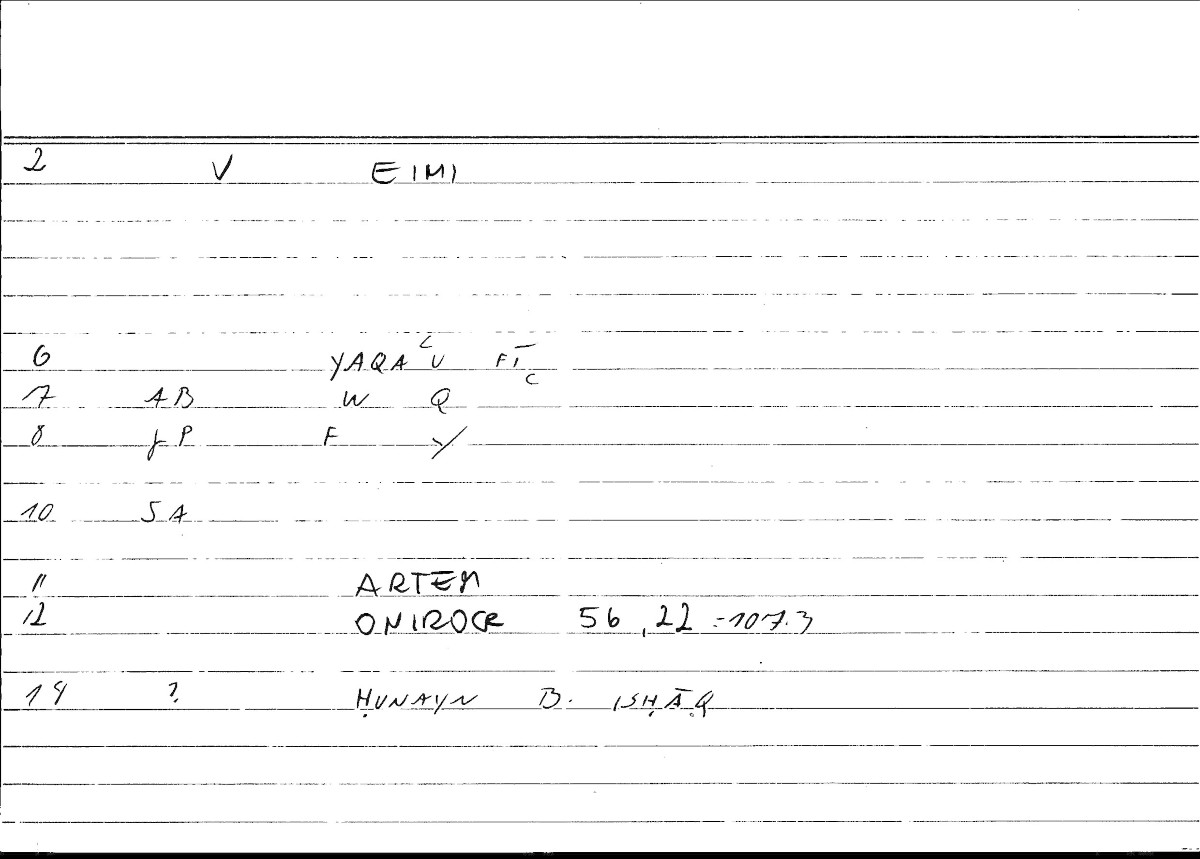 2 V EIMI
6 YAQAʿU FĪ
7 AB W Q
8 JP F Y
10 SA
11 ARTEM
12 ONIROCR 56,22 = 107.3
14 ? ḤUNAYN B. ISḤĀQ